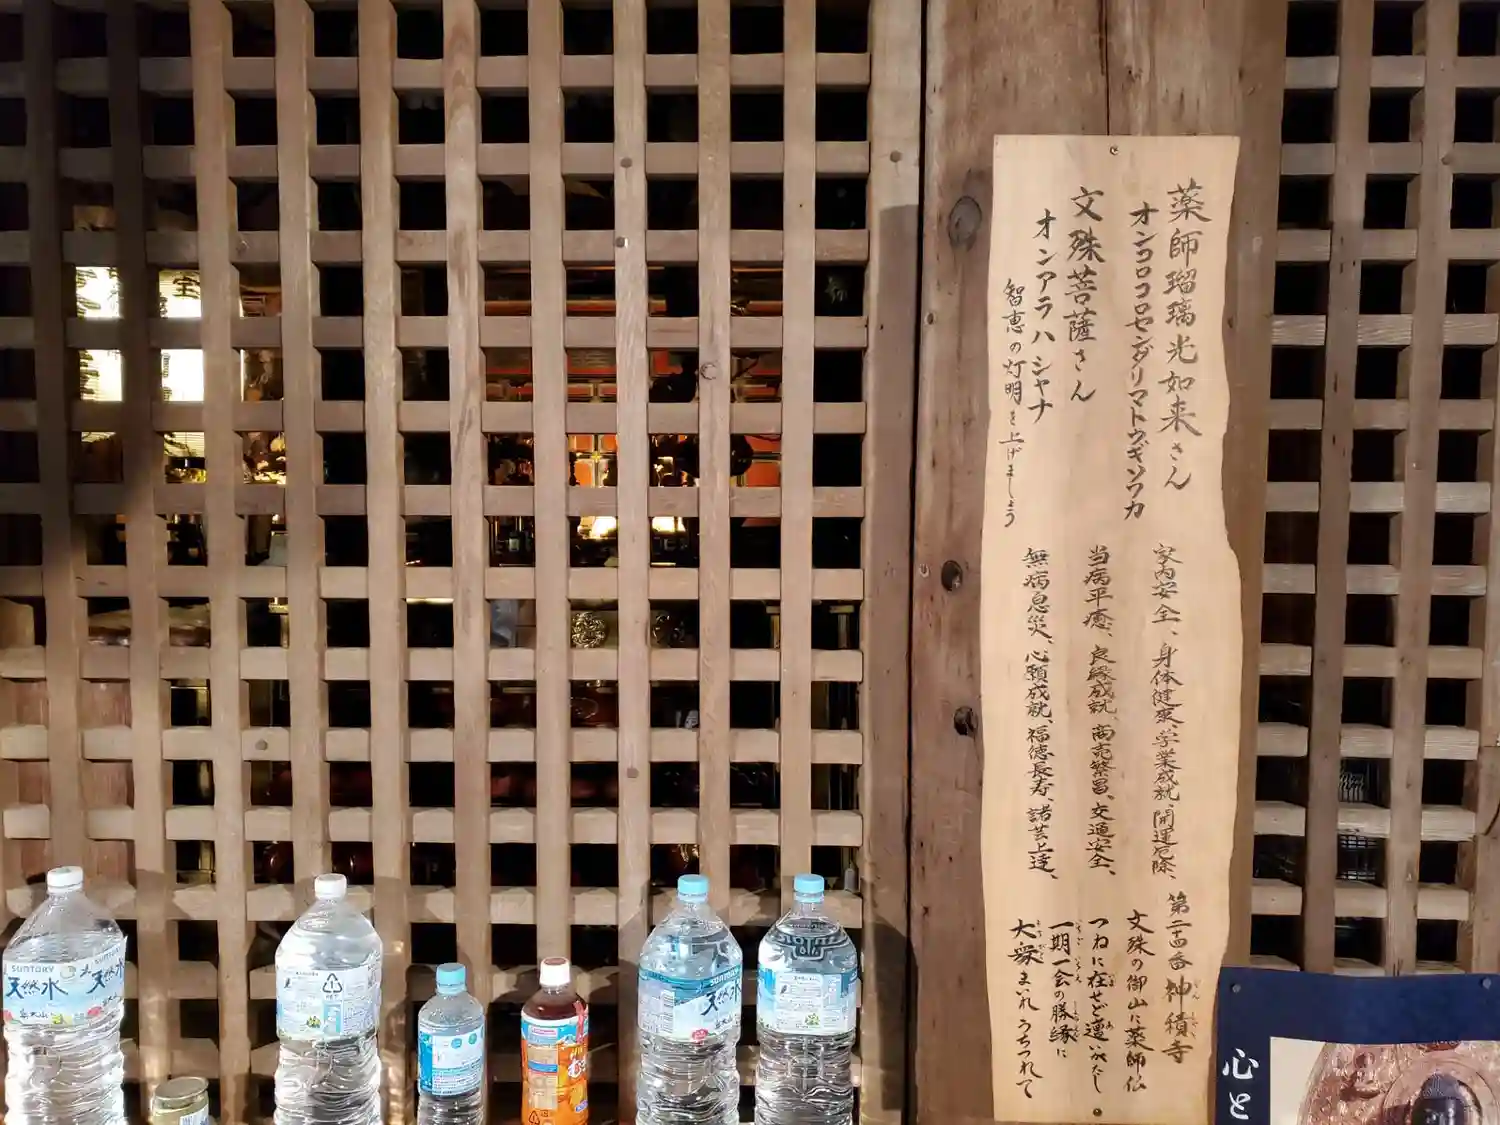 薬師瑠璃光如来さん
オンコロコロセンダリマトウギソワカ
文殊菩薩さん
オンアラハシャナ
智恵の灯明を上げましょう
家内安全、身体健康、学業成就、開運厄除、
当病平癒、良縁成就、商売繁昌、交通安全、
無病息災、心願成就、福徳長寿、諸芸上達、
第二十四番 神積寺
文殊の御山に薬師仏
つねに在せど遭いがたし
一期一会の勝縁に
大衆まいれうちつれて
心と
SUNTORY
天然水
奥大山
SUNTORY
天然水